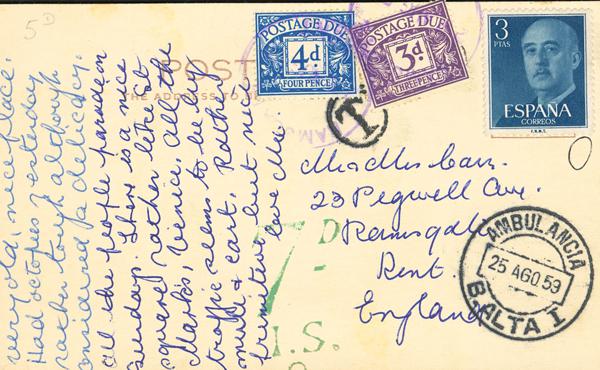 5D
POSTAGE DUE
4d
FOUR PENCE
POSTAGE DUE
3d
THREE PENCE
3
PTAS
ESPAÑA
CORREOS
F.N.M.T.
POST
THE ADDRESS TO
T
very old, nice place.
Had octopus yesterday
rather tough although
considered a delicacy.
all the people parade on
Sunday. There is a nice
square rather like St
Marks, Venice. All the
traffic seems to be by
mule & cart. Rather
primitive but nice
love
Mr & Mrs
23 Pegwell Ave.
Ramsgate
Kent
England
AMBULANCIA
25 AGO 59
B.ALTA I
7D
I.S.